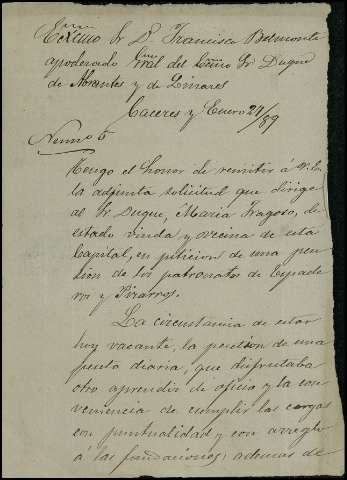 Excmo Sr D. Francisco Belmonte
apoderado Gral del Excmo Sr Duque
de Abrantes y de Linares
Caceres y Enero 24/89
Numo 5
Tengo el honor de remitir á V.E.
la adjunta solicitud que dirige
al Sr Duque, Maria Fragoso, de
estado viuda y vecina de esta
Capital, en peticion de una pen
sion de los patronatos de Espade
ros y Pizarros.
La circustancia de estar
hoy vacante, la pension de una
peseta diaria, que disfrutaba
otro aprendiz de oficio y la con
veniencia de cumplir las cargas
con puntualidad y con arreglo
á las fundaciones; ademas de